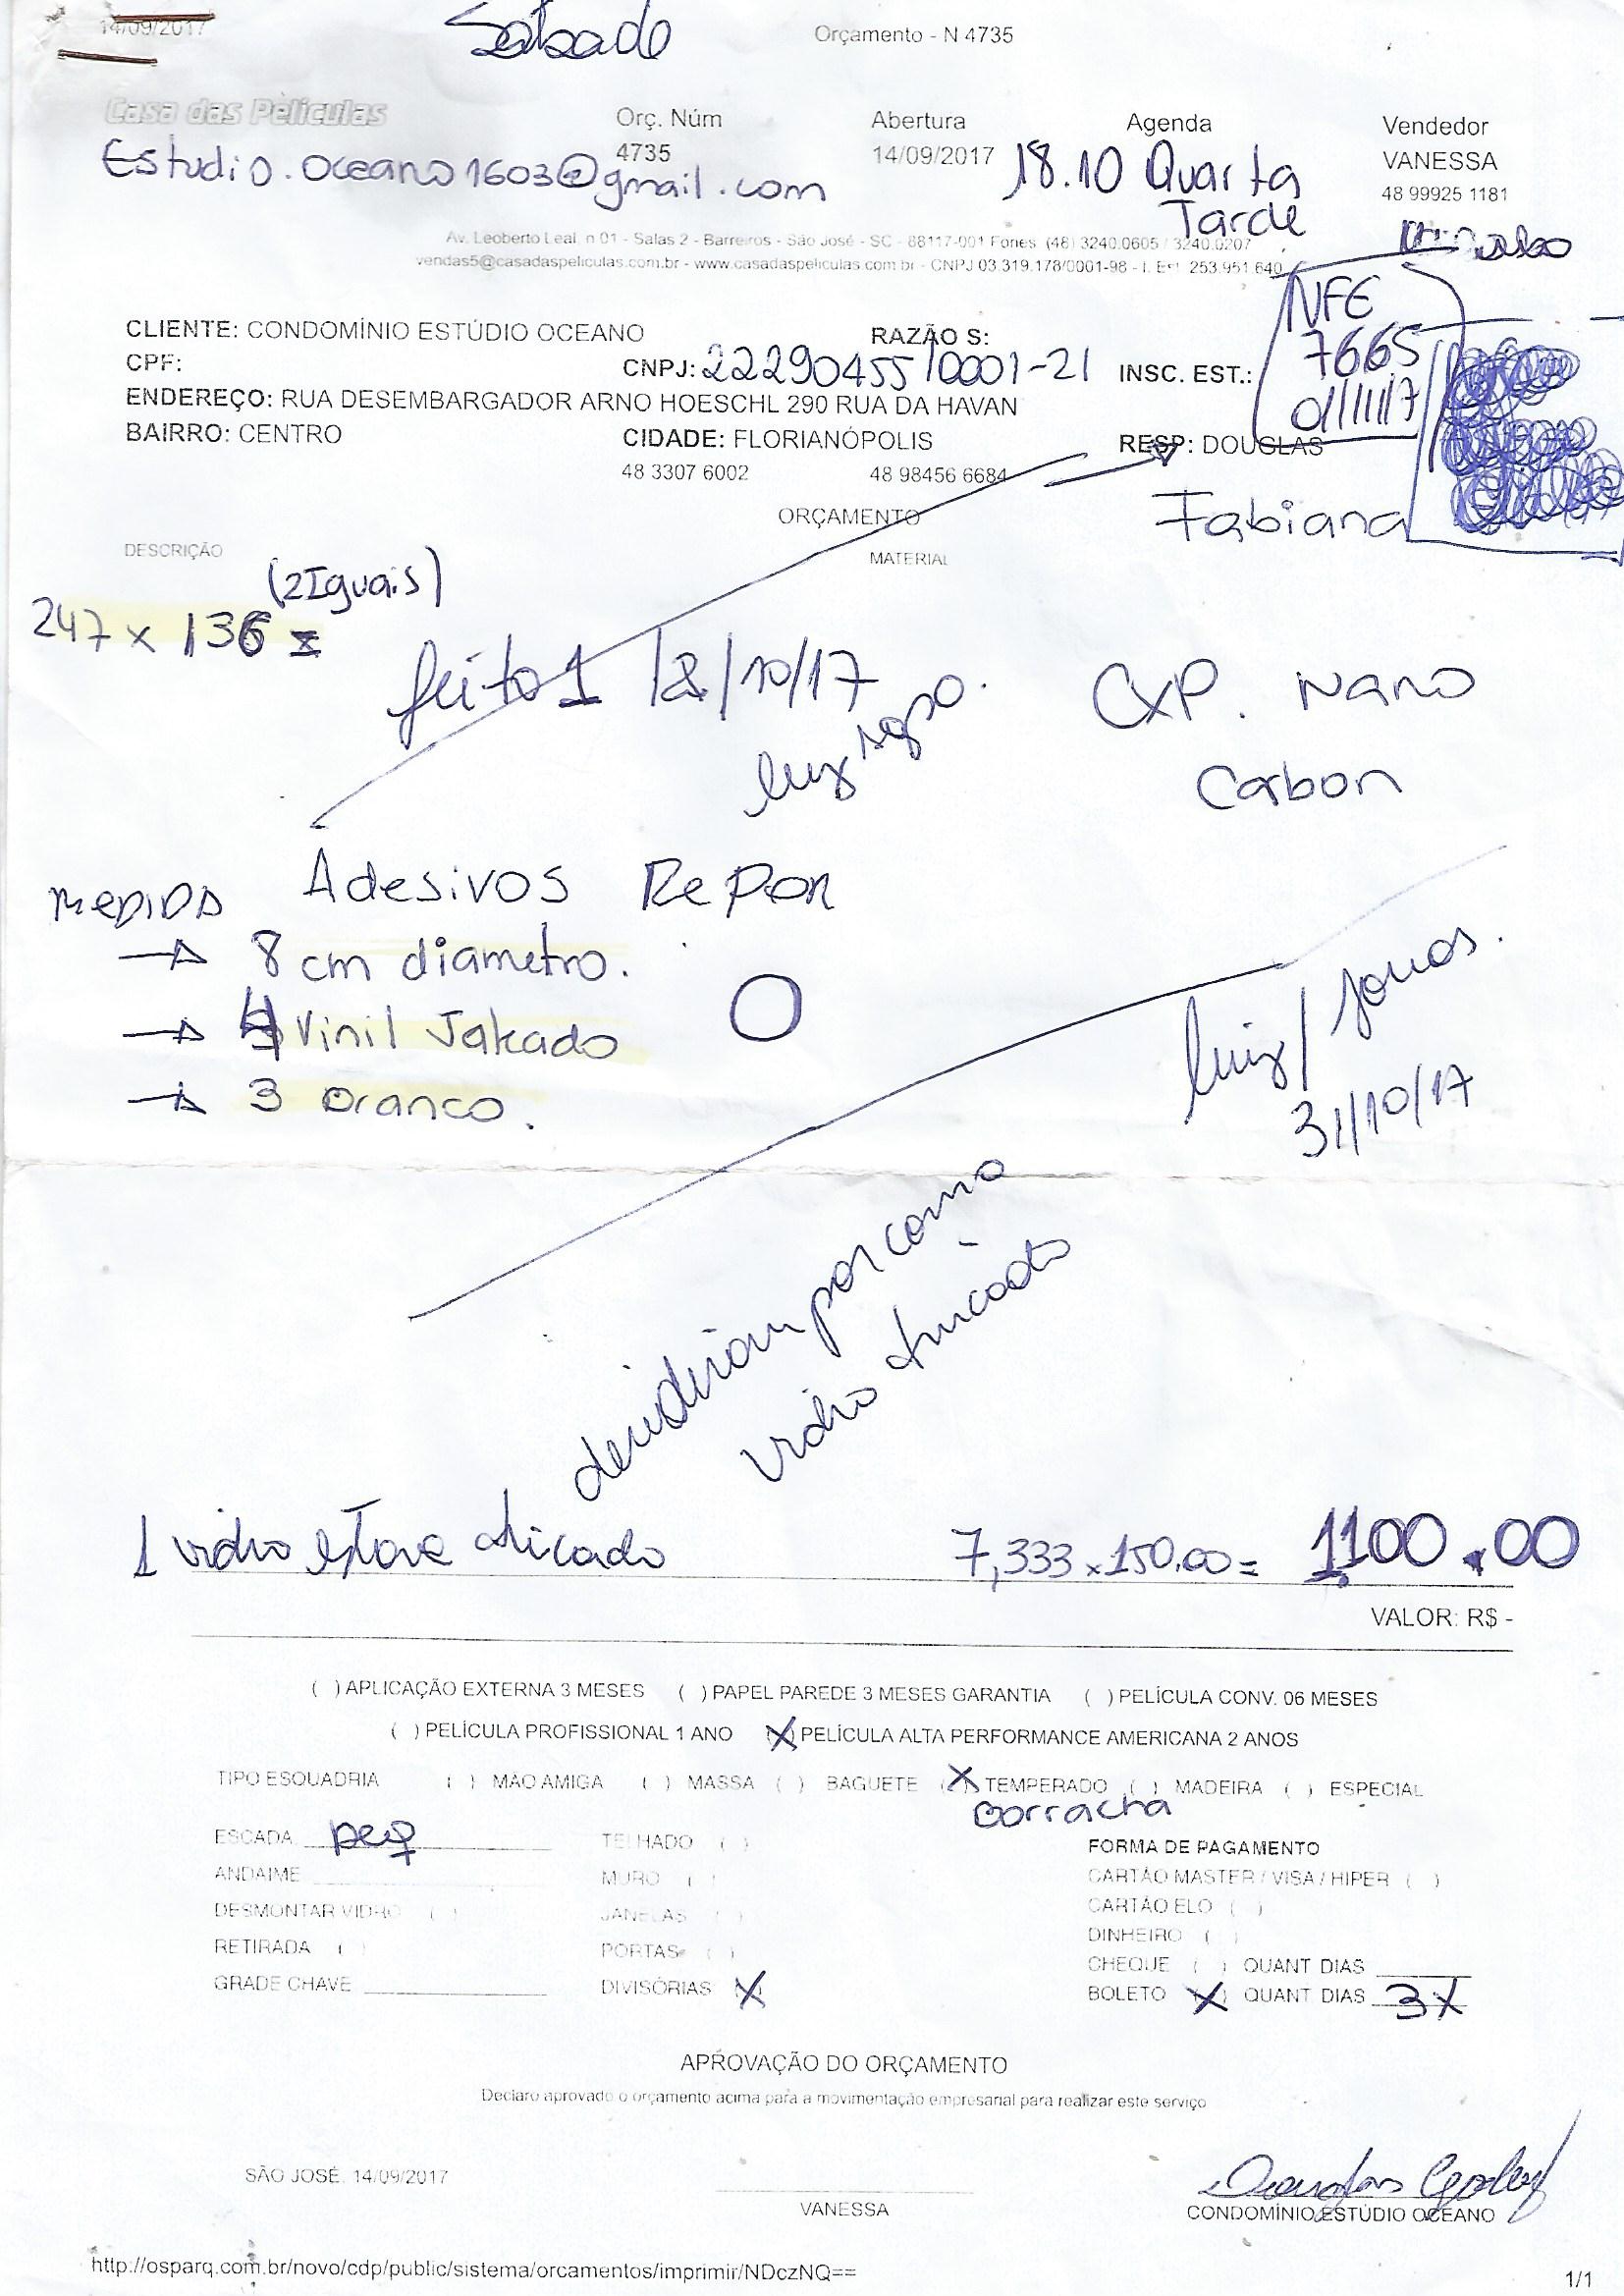 14/09/2017
Sabado
Orçamento - N 4735
Casa das Películas
Orç. Núm
4735
Abertura
14/09/2017
Agenda
18.10 Quarta
Tarde
Vendedor
VANESSA
48 99925 1181
Estudio.oceano1603@gmail.com
Av. Leoberto Leal, n 01 - Salas 2 - Barreiros - São José - SC - 88117-001 Fones (48) 3240.0605 / 3240.0207
vendas5@casadaspeliculas.com.br - www.casadaspeliculas.com.br - CNPJ 03.319.178/0001-98 - I. Est. 253.951.640
NFE
7665
01/11/17
CLIENTE: CONDOMÍNIO ESTÚDIO OCEANO
RAZÃO S:
CPF:
CNPJ: 22290455/0001-21
INSC. EST.:
ENDEREÇO: RUA DESEMBARGADOR ARNO HOESCHL 290 RUA DA HAVAN
BAIRRO: CENTRO
CIDADE: FLORIANÓPOLIS
RESP: DOUGLAS
48 3307 6002
48 98456 6684
Fabiana
ORÇAMENTO
DESCRIÇÃO
MATERIAL
(2 Iguais)
247 x 136 =
feito 1 18/10/17
luiz
Exp. Nano
Carbon
Adesivos Repor
MEDIDA
8 cm diametro.
4 Vinil Jateado
3 Branco.
luiz/Jonas.
31/10/17
decidiram por como
vidro trincado
1 vidro estava trincado
7,333 x 150,00 = 1.100.00
VALOR: R$ -
( ) APLICAÇÃO EXTERNA 3 MESES ( ) PAPEL PAREDE 3 MESES GARANTIA ( ) PELÍCULA CONV. 06 MESES
( ) PELÍCULA PROFISSIONAL 1 ANO (X) PELÍCULA ALTA PERFORMANCE AMERICANA 2 ANOS
TIPO ESQUADRIA ( ) MÃO AMIGA ( ) MASSA ( ) BAGUETE (X) TEMPERADO ( ) MADEIRA ( ) ESPECIAL
Borracha
ESCADA peq
TELHADO ( )
FORMA DE PAGAMENTO
ANDAIME
MURO ( )
CARTÃO MASTER / VISA / HIPER ( )
DESMONTAR VIDRO ( )
JANELAS ( )
CARTÃO ELO ( )
RETIRADA ( )
PORTAS ( )
DINHEIRO ( )
CHEQUE ( ) QUANT DIAS
GRADE CHAVE
DIVISÓRIAS (X)
BOLETO (X) QUANT DIAS 3X
APROVAÇÃO DO ORÇAMENTO
Declaro aprovado o orçamento acima para a movimentação empresarial para realizar este serviço
SÃO JOSÉ, 14/09/2017
VANESSA
CONDOMÍNIO ESTÚDIO OCEANO
http://osparq.com.br/novo/cdp/public/sistema/orcamentos/imprimir/NDczNQ==
1/1